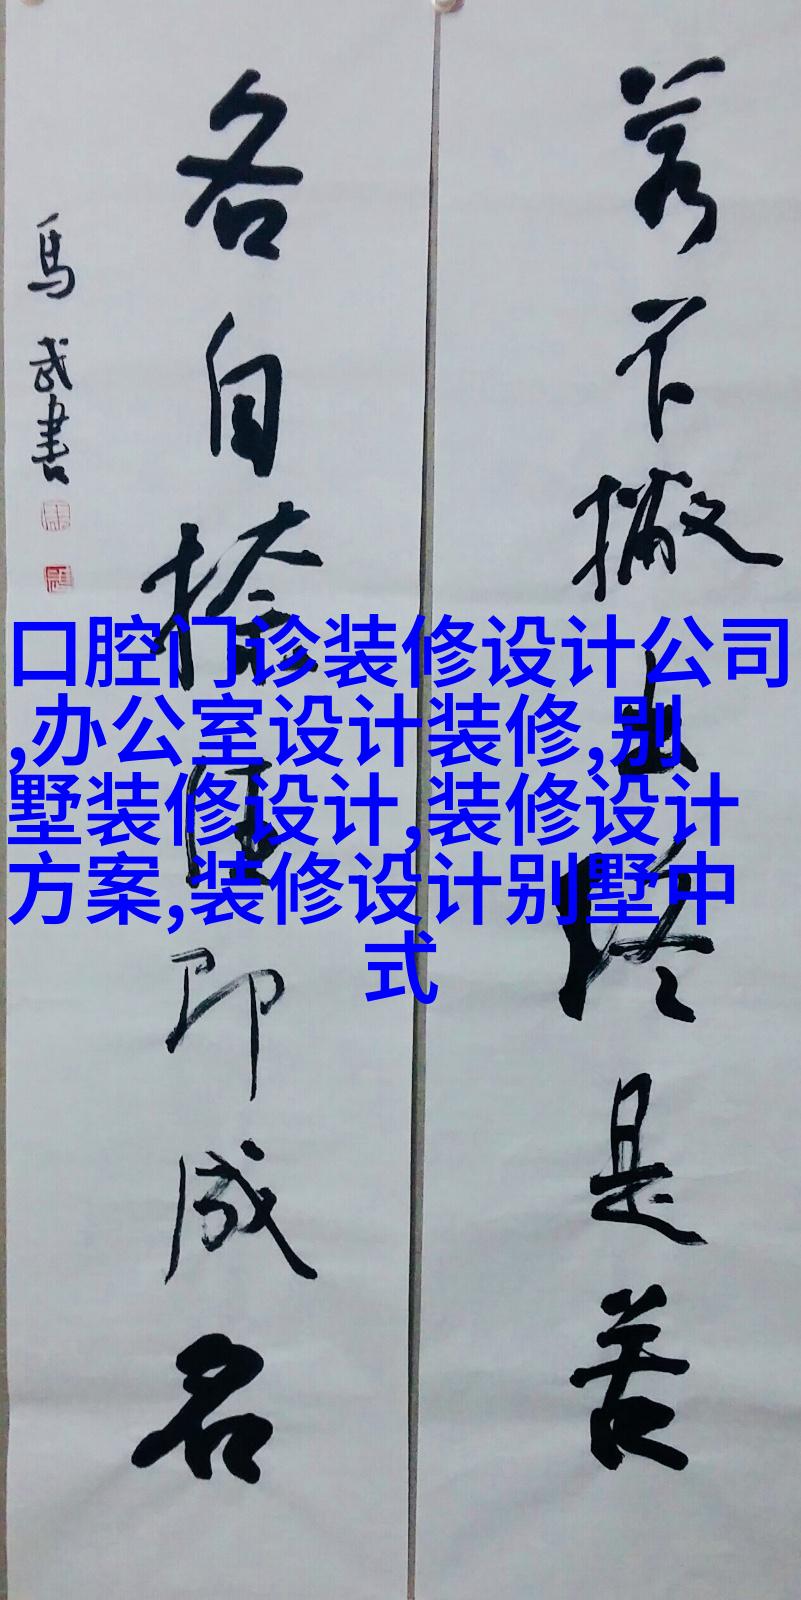 若不撇出终是苦
各自捺住即成名
馬武書
口腔门诊装修设计公司
,办公室设计装修,别
墅装修设计,装修设计
方案,装修设计别墅中
式